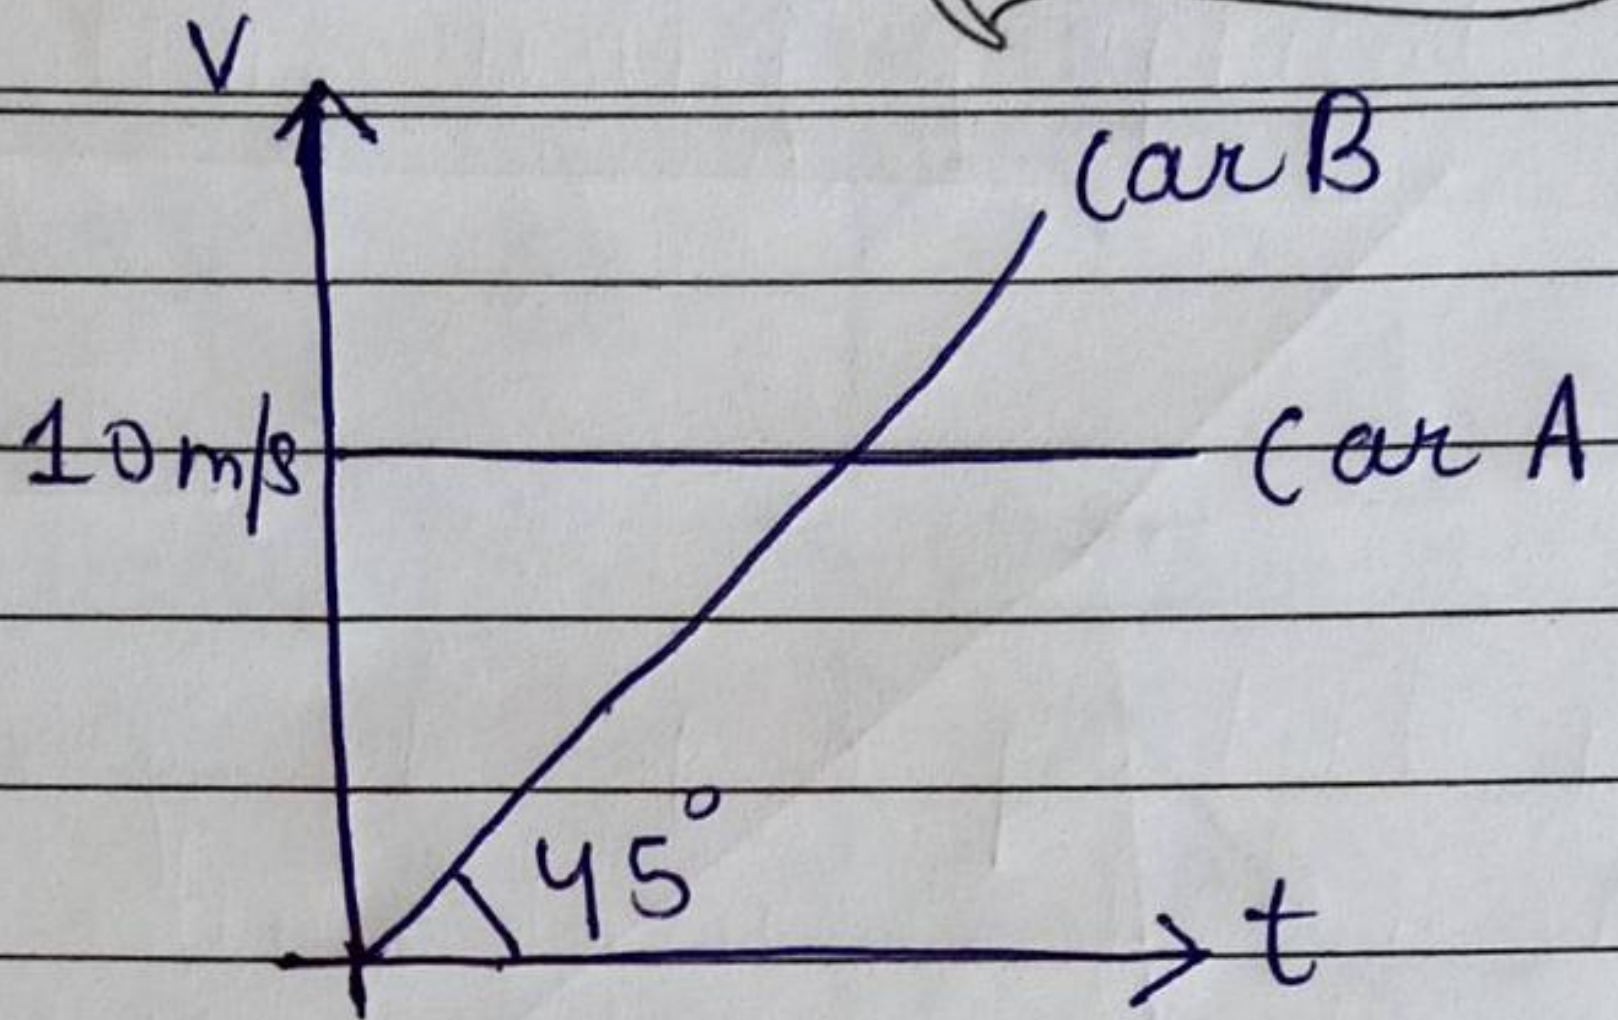 V
Car B
10 m/s
Car A
45°
t